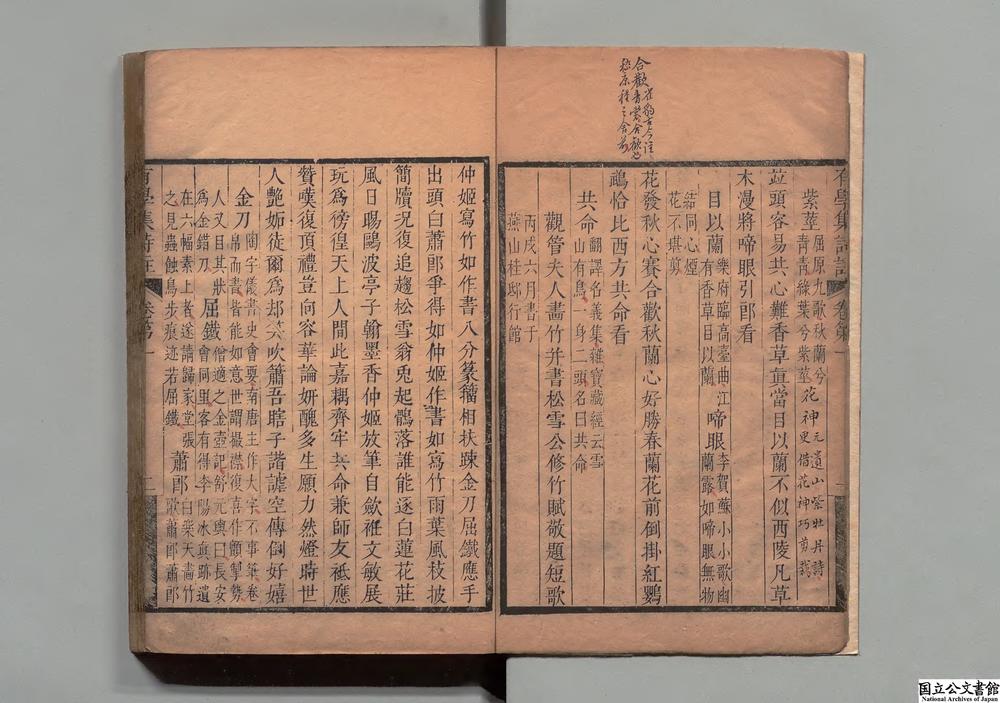 崔豹古今注
合歡青裳合歡也
嵇康種之舍前
有學集詩註 卷第一
紫莖 屈原九歌秋蘭兮青青綠葉兮紫莖 花神 元遺山紫牡丹詩更借花神巧剪裁
竝頭容易共心難香草眞當目以蘭不似西陵凡草
木漫將啼眼引郎看
目以蘭 樂府臨高臺曲江有香草目以蘭 啼眼 李賀蘇小小歌幽蘭露如啼眼無物
結同心煙花不堪剪
花發秋心賽合歡秋蘭心好勝春蘭花前倒掛紅鸚
鵡恰比西方共命看
共命 翻譯名義集雜寶藏經云雪山有鳥一身二頭名曰共命
觀管夫人畫竹并書松雪公修竹賦敬題短歌
丙戌六月書于燕山桂邸行館
仲姬寫竹如作書八分篆籀相扶踈金刀屈鐵應手
出頭白蕭郎爭得如仲姬作書如寫竹雨葉風枝披
簡牘況復追趨松雪翁兎起鶻落誰能逐白蓮花莊
風日暘鷗波亭子翰墨香仲姬放筆自歛袵文敏展
玩爲徬徨天上人間此嘉耦齊牢共命兼師友祇應
贊嘆復頂禮豈向容華論妍醜多生願力然燈時世
人艷妬徒爾爲却笑吹簫吾瞎子諧謔空傳倒好嬉
金刀 陶宗儀書史會要南唐主作大字不事筆卷帛而書皆能如意世謂撮襟復喜作顫掣勢
人又目其狀爲金錯刀 屈鐵 僧適之金壺記舒元輿曰長安會同里客有得李陽冰眞跡遺
在六幅素上者遂請歸家堂張之見蟲蝕鳥步痕迹若屈鐵 蕭郎 白樂天畫竹歌蕭郎蕭郎
有學集詩註 卷第一 二
国立公文書館
National Archives of Japan